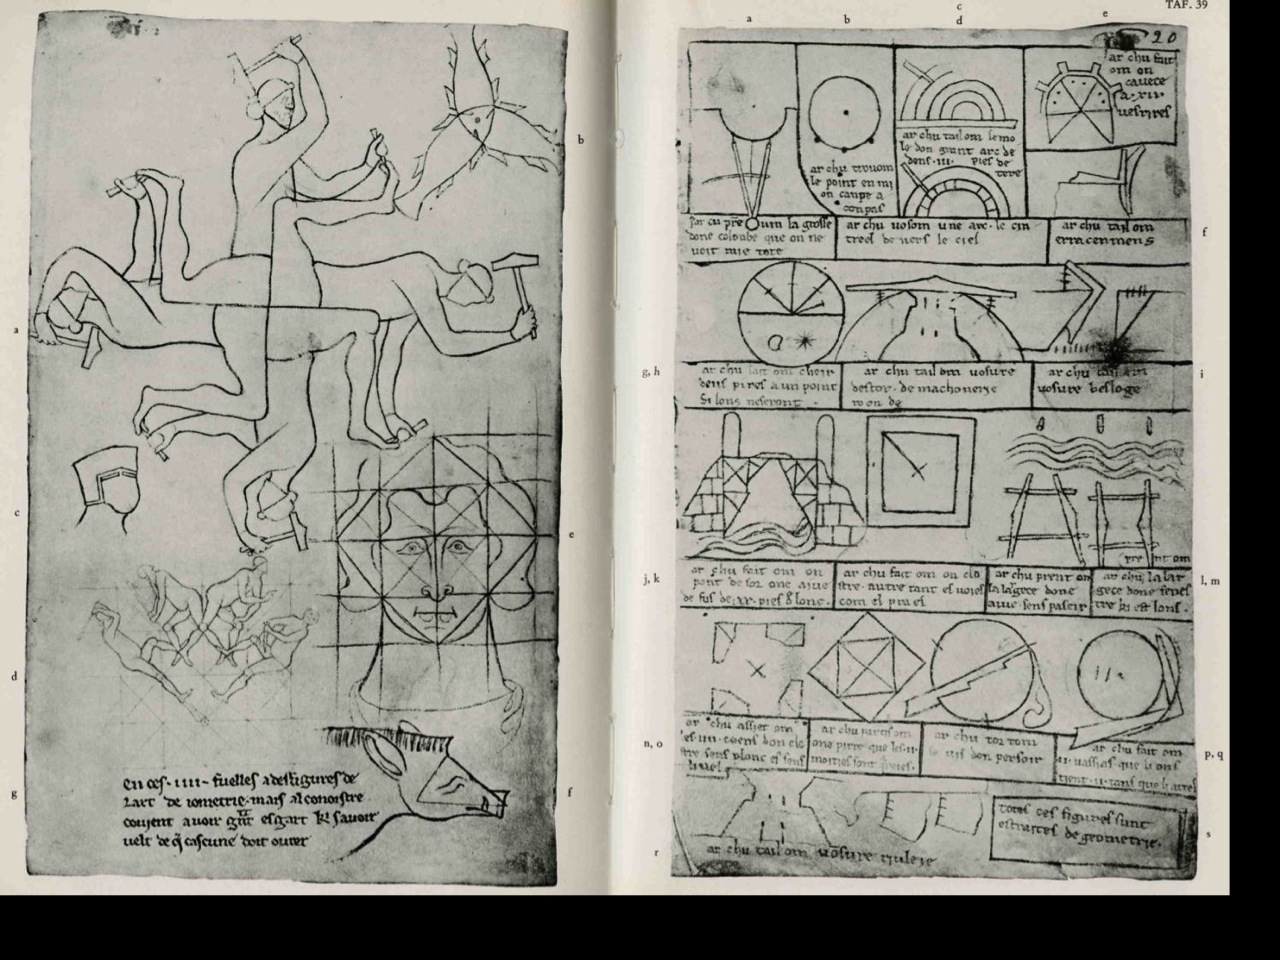 TAF. 39
a
b
c
d
e
20
b
a
c
e
d
g
f
En ces .IIII. fuelles a des figures de
lart de iometrie. mais al conoistre
covient avoir grāt esgart ki savoir
velt de q̄ cascune doit ovrer
ar chu fait
om on
cavece
a .xii.
vesrires
ar chu tail om le mo
le don grant arc de
dens .iii. pies de
tere
ar chu trovom
le point en mi
on canpe a
conpas
Par cu prē om la grosse
done colonbe que on ne
voit mie tote
ar chu vosom une arc. le cin
treel devers le ciel
ar chu tail om
erracenmens
f
g, h
ar chu fait om cheir
deus pires a un point
si lons neseront
ar chu tail om vosure
destor. de machonerie
roonde
ar chu tail om
vosure besloge
i
j, k
ar chu fait om on
pont desor one aive
de fus de .xx. pies de lonc.
ar chu fait om on clo
stre. autre tant es voies
com el praes
ar chu prent om
la largece done
aive sens paseir
prent om
ar chu la lar
gece done fenes
tre ki est lons.
l, m
n, o
ar chu assiet om
es .iiii. coens don clo
stre sens plonc et sens
livel
ar chu partis om
one pirre que les .ii.
moities sont qareies.
ar chu tor tom
le vis don persoir
ar chu fait om
.ii. vassias que li ons
tient .ii. tans que li atres
p, q
r
ar chu tail om vosure riuleie
totes ces figures sunt
estraites de geometrie.
s